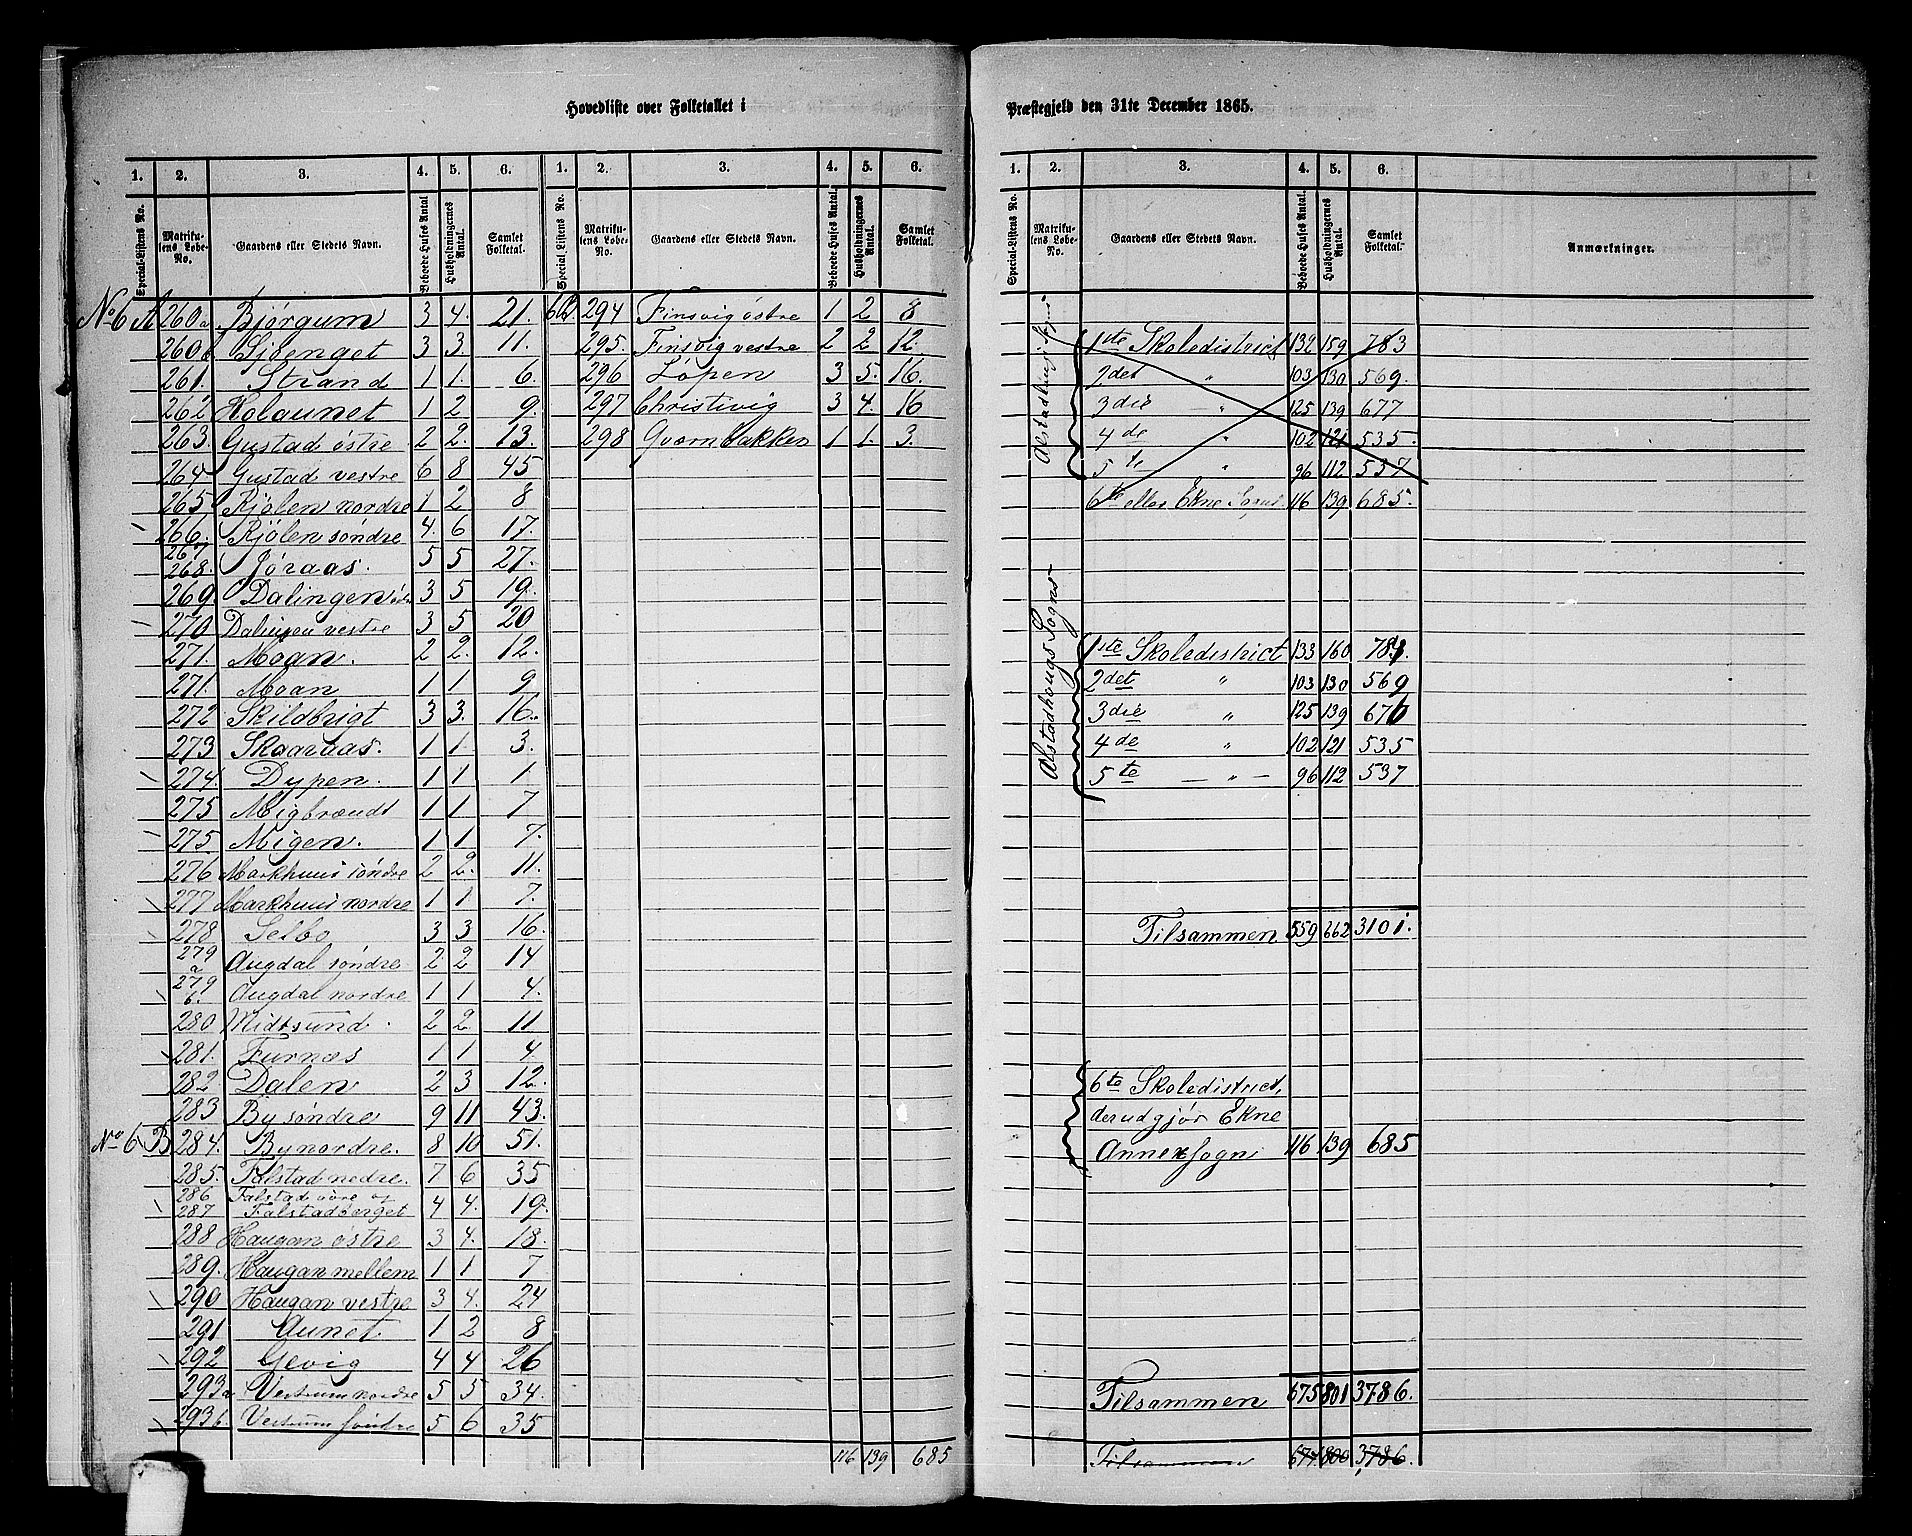 Hovedliste over Folketallet i
Præstegjeld den 31te December 1865.
1. 2. 3. 4. 5. 6. 1. 2. 3. 4. 5. 6.
Special-Listens No. Matrikulens Løbe-No. Gaardens eller Stedets Navn. Beboede Huses Antal Husholdningernes Antal. Samlet Folketal. Special-Listens No. Matrikulens Løbe-No. Gaardens eller Stedets Navn. Beboede Huses Antal. Husholdningernes Antal. Samlet Folketal.
No 6 A 260a Bjørgum 3 4. 21. 6B. 294 Finsvig østre 1 2 8
260b Sjøenget 3 3. 11. 295. Finsvig vestre 2 2 12
261. Strand 1 1. 6. 296 Løpen 3 5. 16.
262 Holaunet 1 2 9. 297 Christivig 3 4. 16
263. Gustad østre 2 2. 13. 298 Qværnbakken 1 1. 3.
264 Gustad vestre 6 8 45
265 Kjølen nordre 1 2 8
266. Kjølen søndre 4. 6 17.
267
268. Jøraas. 5 5 27.
269. Dalingen øst 3 5 19.
270 Dalingen vestre 3 5 20
271. Moan. 2 2. 12.
271. Moan 1 1 9
272 Skildbrigt 3 3. 16.
273 Skaanaas. 1 1. 3.
274. Dypen. 1 1 1.
275 Migbrændt 1 1 7
275 Migen. 1 1 7.
276 Markhuus søndre 2 2. 11.
277 Markhuus nordre 1 1 7.
278 Selbo 3 3 16.
279 a Augdal søndre. 2 2 14
279 b. Augdal nordre 1 1 4.
280 Midtsund. 2 2 11
281. Furnæs 1 1 4
282 Dalen 2 3 12.
283 By søndre 9 11 43.
No 6 B 284. By nordre. 8 10 51.
285. Falstad nedre. 7 6 35
286 Falstad øvre og
287 Falstadberget 4 4. 19.
288 Haugan østre 3 4. 18.
289. Haugan mellem 1 1 7
290 Haugan vestre 3 4. 24
291 Aunet 1 2 8
292 Gevig 4 4 26
293a Vestrum nordre 5 5 34.
293b. Vestrum søndre 5 6 35
116 139 685
1. 2. 3. 4. 5. 6.
Special-Listens No. Matrikulens Løbe-No. Gaardens eller Stedets Navn. Beboede Huses Antal. Husholdningernes Antal. Samlet Folketal. Anmærkninger.
Alstadhaugs Sogn
1ste Skoledistrict 132 159 783
2det " 103 130 569.
3die — " 125 139 677
4de " 102 121 535.
5te " 96 112 537
6te eller Ekne Sogn. 116 139 685.
Alstadhougs Sogns-
1ste Skoledistrict 133 160 784.
2det " 103 130 569
3die " 125 139 676
4de " 102 121 535
5te — " — 96 112 537
Tilsammen 559 662 3101.
6te Skoledistrict,
der udgjør Ekne
Annex Sogn 116 139 685
Tilsammen 675 801 3786.
Tilsammen 674 800 3786.